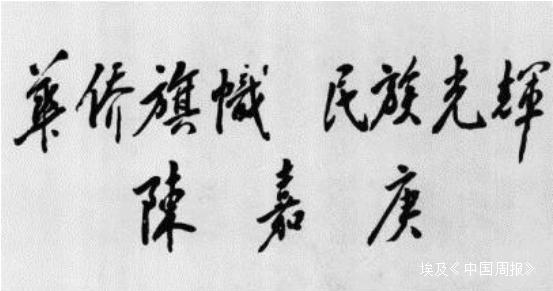 華侨旗幟 民族光輝
陳嘉庚
埃及《中国周报》